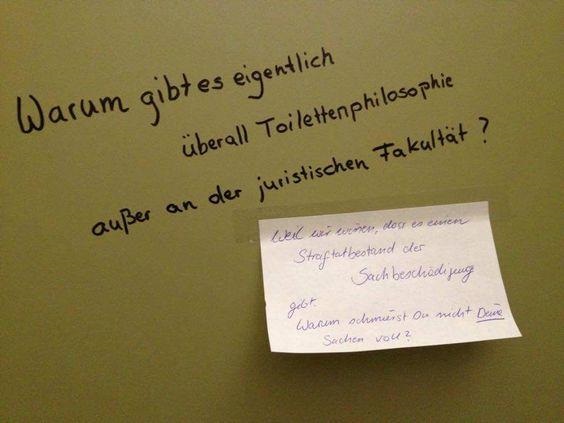 Warum gibt es eigentlich
überall Toilettenphilosophie
außer an der juristischen Fakultät?
Weil wir wissen, dass es einen
Straftatbestand der
Sachbeschädigung
gibt.
Warum schmierst Du nicht Deine
Sachen voll?